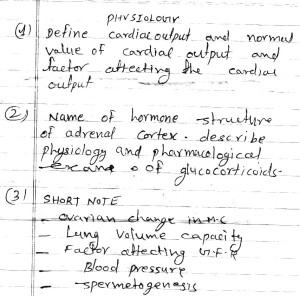 PHYSIOLOGY
(1) Define cardiac output and normal
value of cardial output and
factor affecting the cardiac
output
(2) Name of hormone structure
of adrenal cortex. describe
physiclogy and pharmacological
of glucocorticoids.
(3) SHORT NOTE
- ovarian change in M.C
- Lung volume capacity
- Factor affecting G.F.R
- Blood pressure
- spermetogenasis